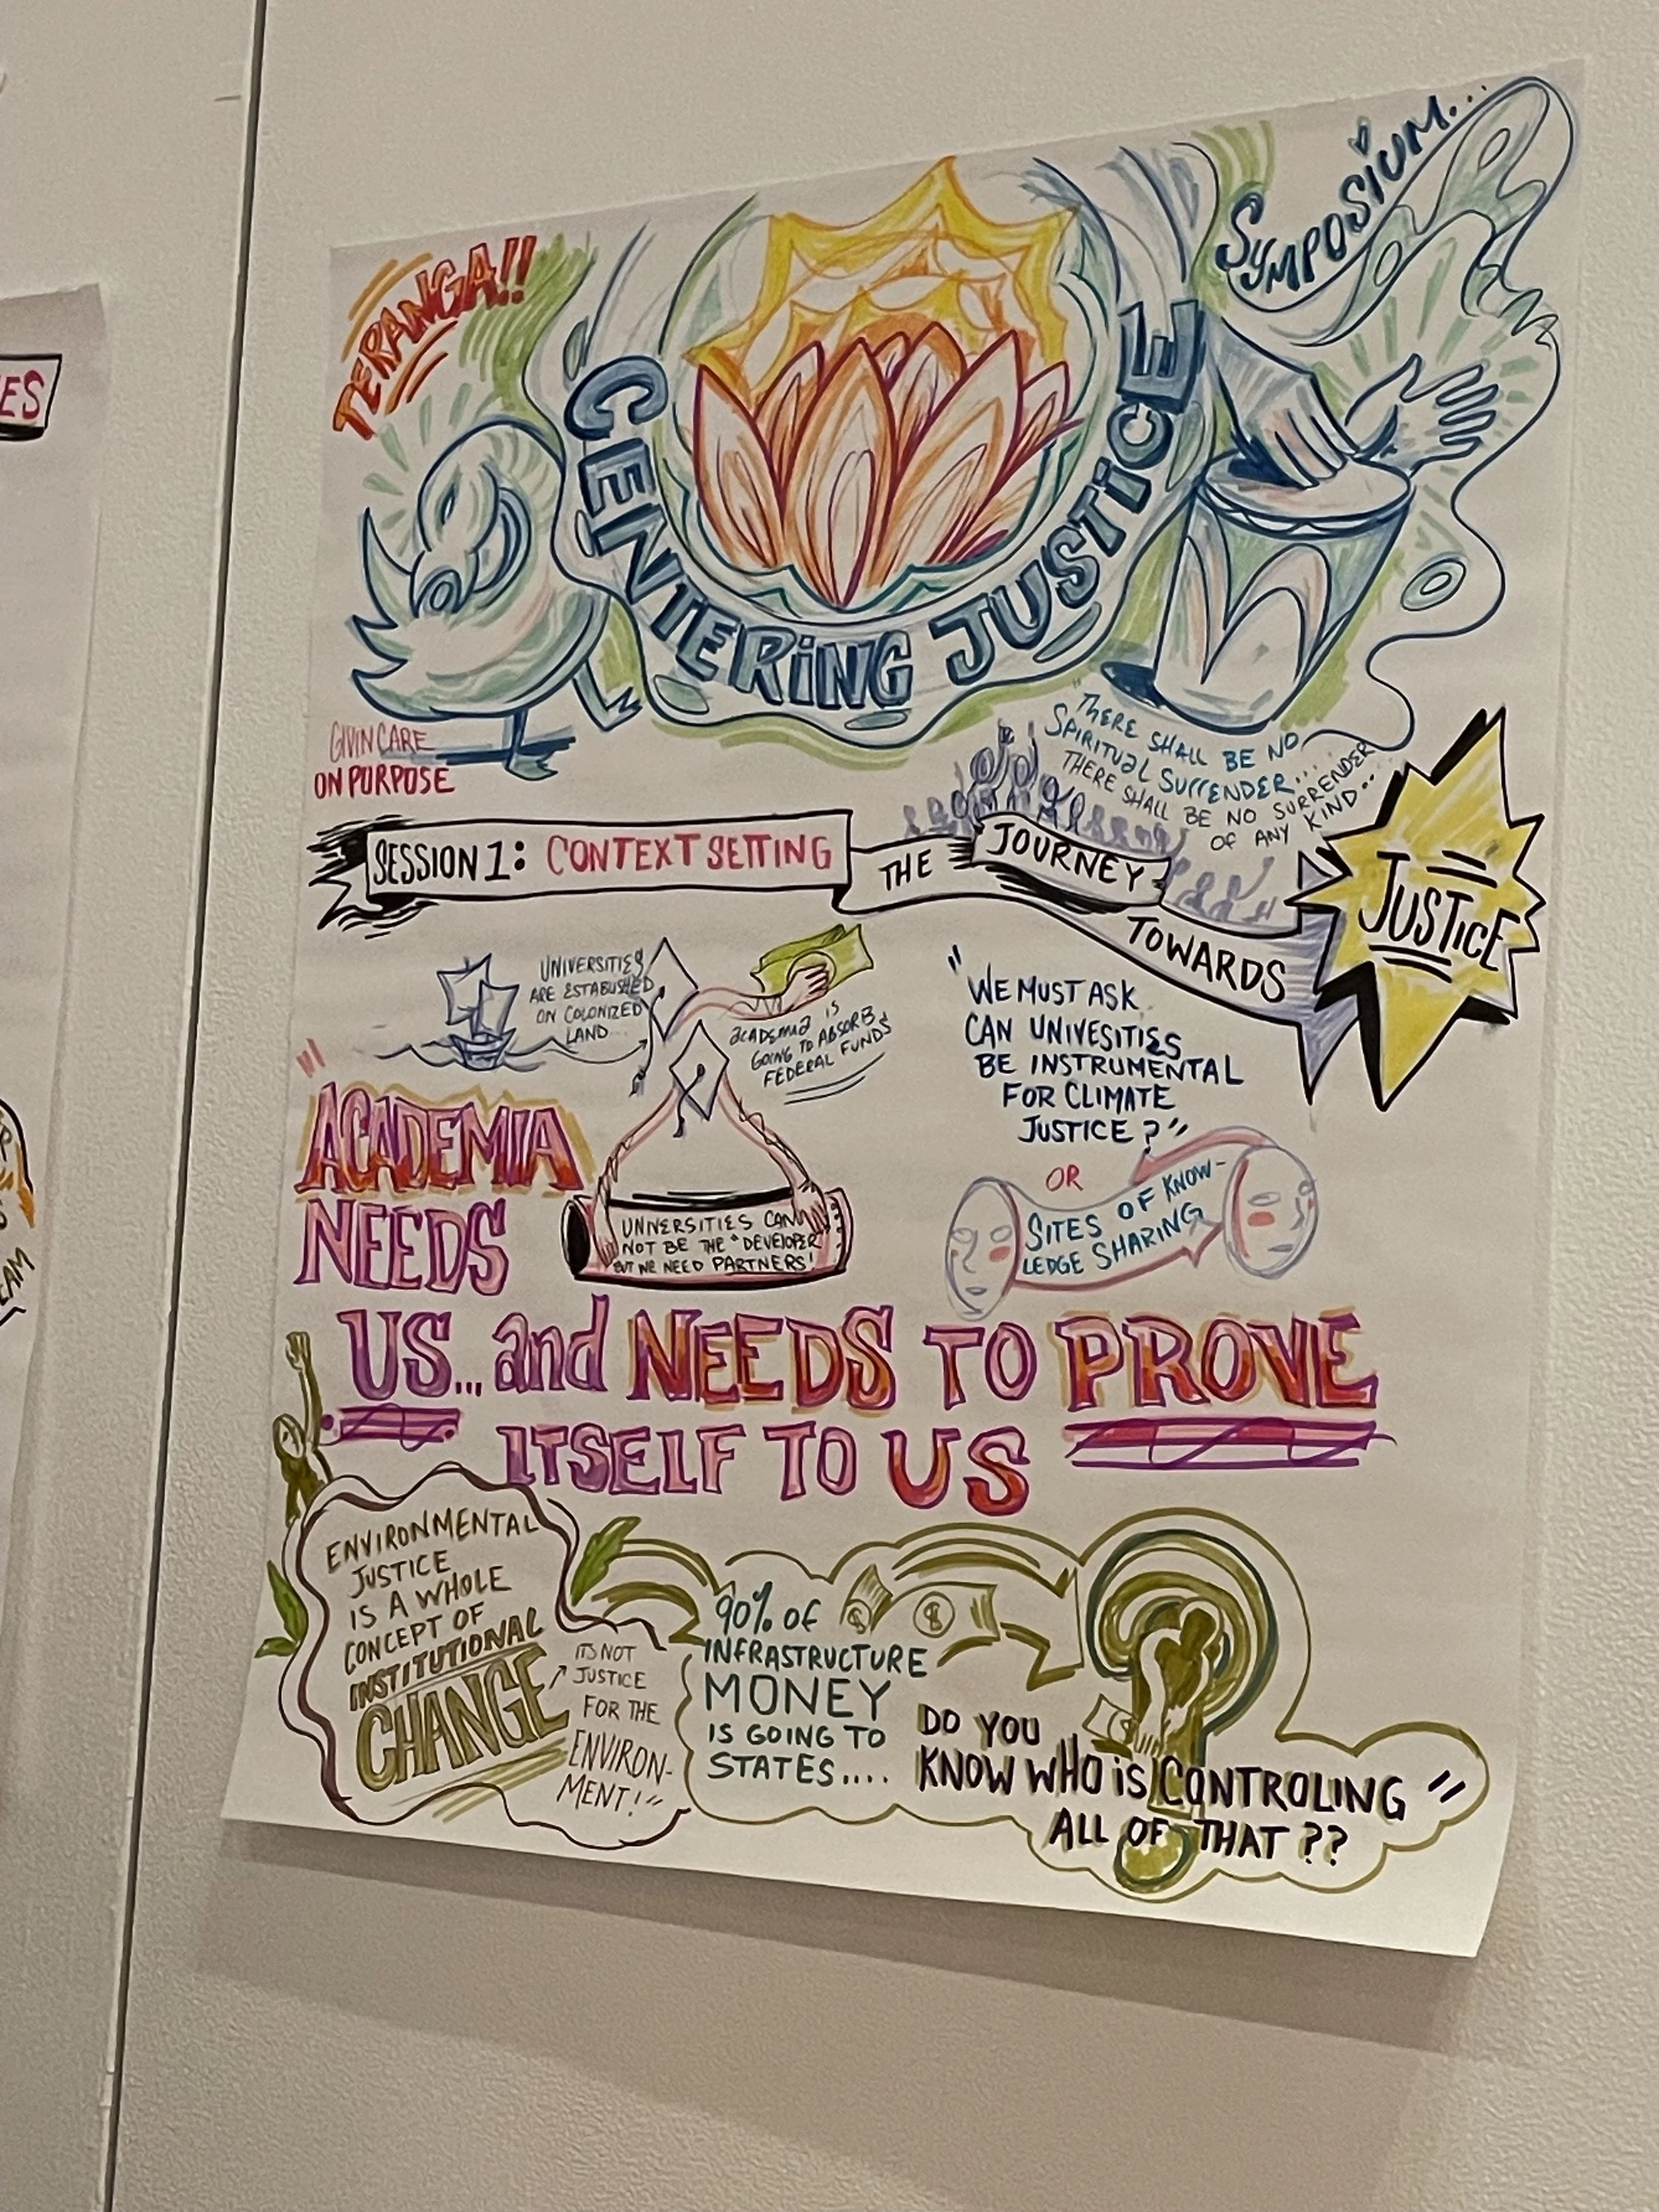 TERANGA!!
SYMPOSIUM...
CENTERING JUSTICE
GIVIN CARE
ON PURPOSE
"THERE SHALL BE NO
SPIRITUAL SURRENDER...
THERE SHALL BE NO SURRENDER
OF ANY KIND...
SESSION 1: CONTEXT SETTING
THE JOURNEY
TOWARDS
JUSTICE
UNIVERSITIES
ARE ESTABLISHED
ON COLONIZED
LAND...
ACADEMIA IS
GOING TO ABSORB
FEDERAL FUNDS
"WE MUST ASK
CAN UNIVESITIES
BE INSTRUMENTAL
FOR CLIMATE
JUSTICE?"
OR
SITES OF KNOW-
LEDGE SHARING
ACADEMIA
NEEDS
US... and NEEDS TO PROVE
ITSELF TO US
UNIVERSITIES CAN
NOT BE THE "DEVELOPER
BUT WE NEED PARTNERS!
ENVIRONMENTAL
JUSTICE
IS A WHOLE
CONCEPT OF
INSTITUTIONAL
CHANGE
ITS NOT
JUSTICE
FOR THE
ENVIRON-
MENT!"
90% OF
INFRASTRUCTURE
MONEY
IS GOING TO
STATES....
DO YOU
KNOW WHO iS CONTROLING
ALL OF THAT??"
ES
EAM